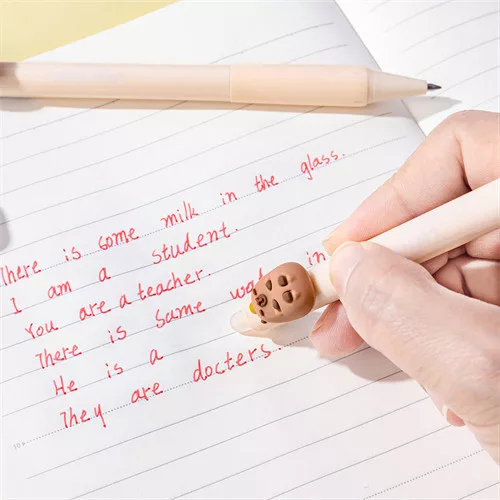 There is some milk in the glass.
I am a student.
You are a teacher.
There is same in
He is a
They are docters.